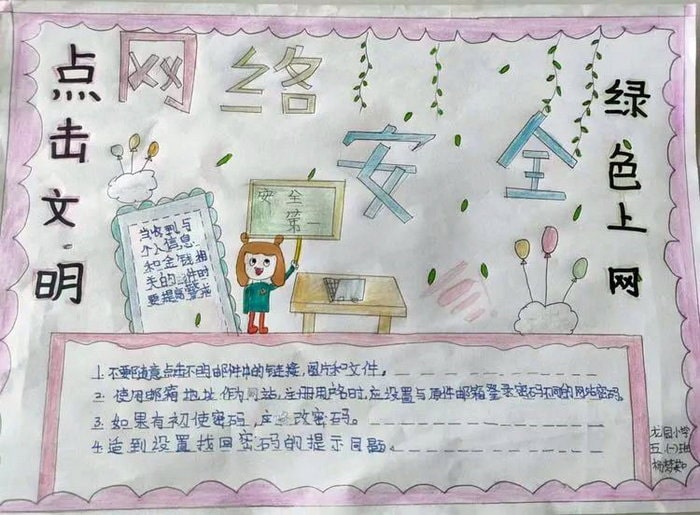 网络
安全
点击文明
绿色上网
安全
第一
当收到与
个人信息
和金钱相
关的件时
要提高警
1.不要随意点击不明邮件中的链接,图片和文件。
2.使用邮箱地址作为网站,注册用名时,应设置与原件邮箱登录密码不同的网站密码。
3.如果有初使密码,应改密码。
4.适到设置找回密码的提示目题。
龙园小学
五(一)班
杨梦